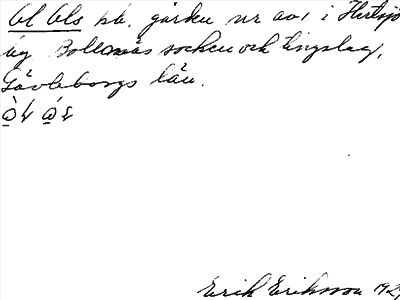 Ol Ols hb. gården nr av1 i Hertsjö
by Bollnäs socken och tingslag,
Gävleborgs län.
Erik Eriksson 192